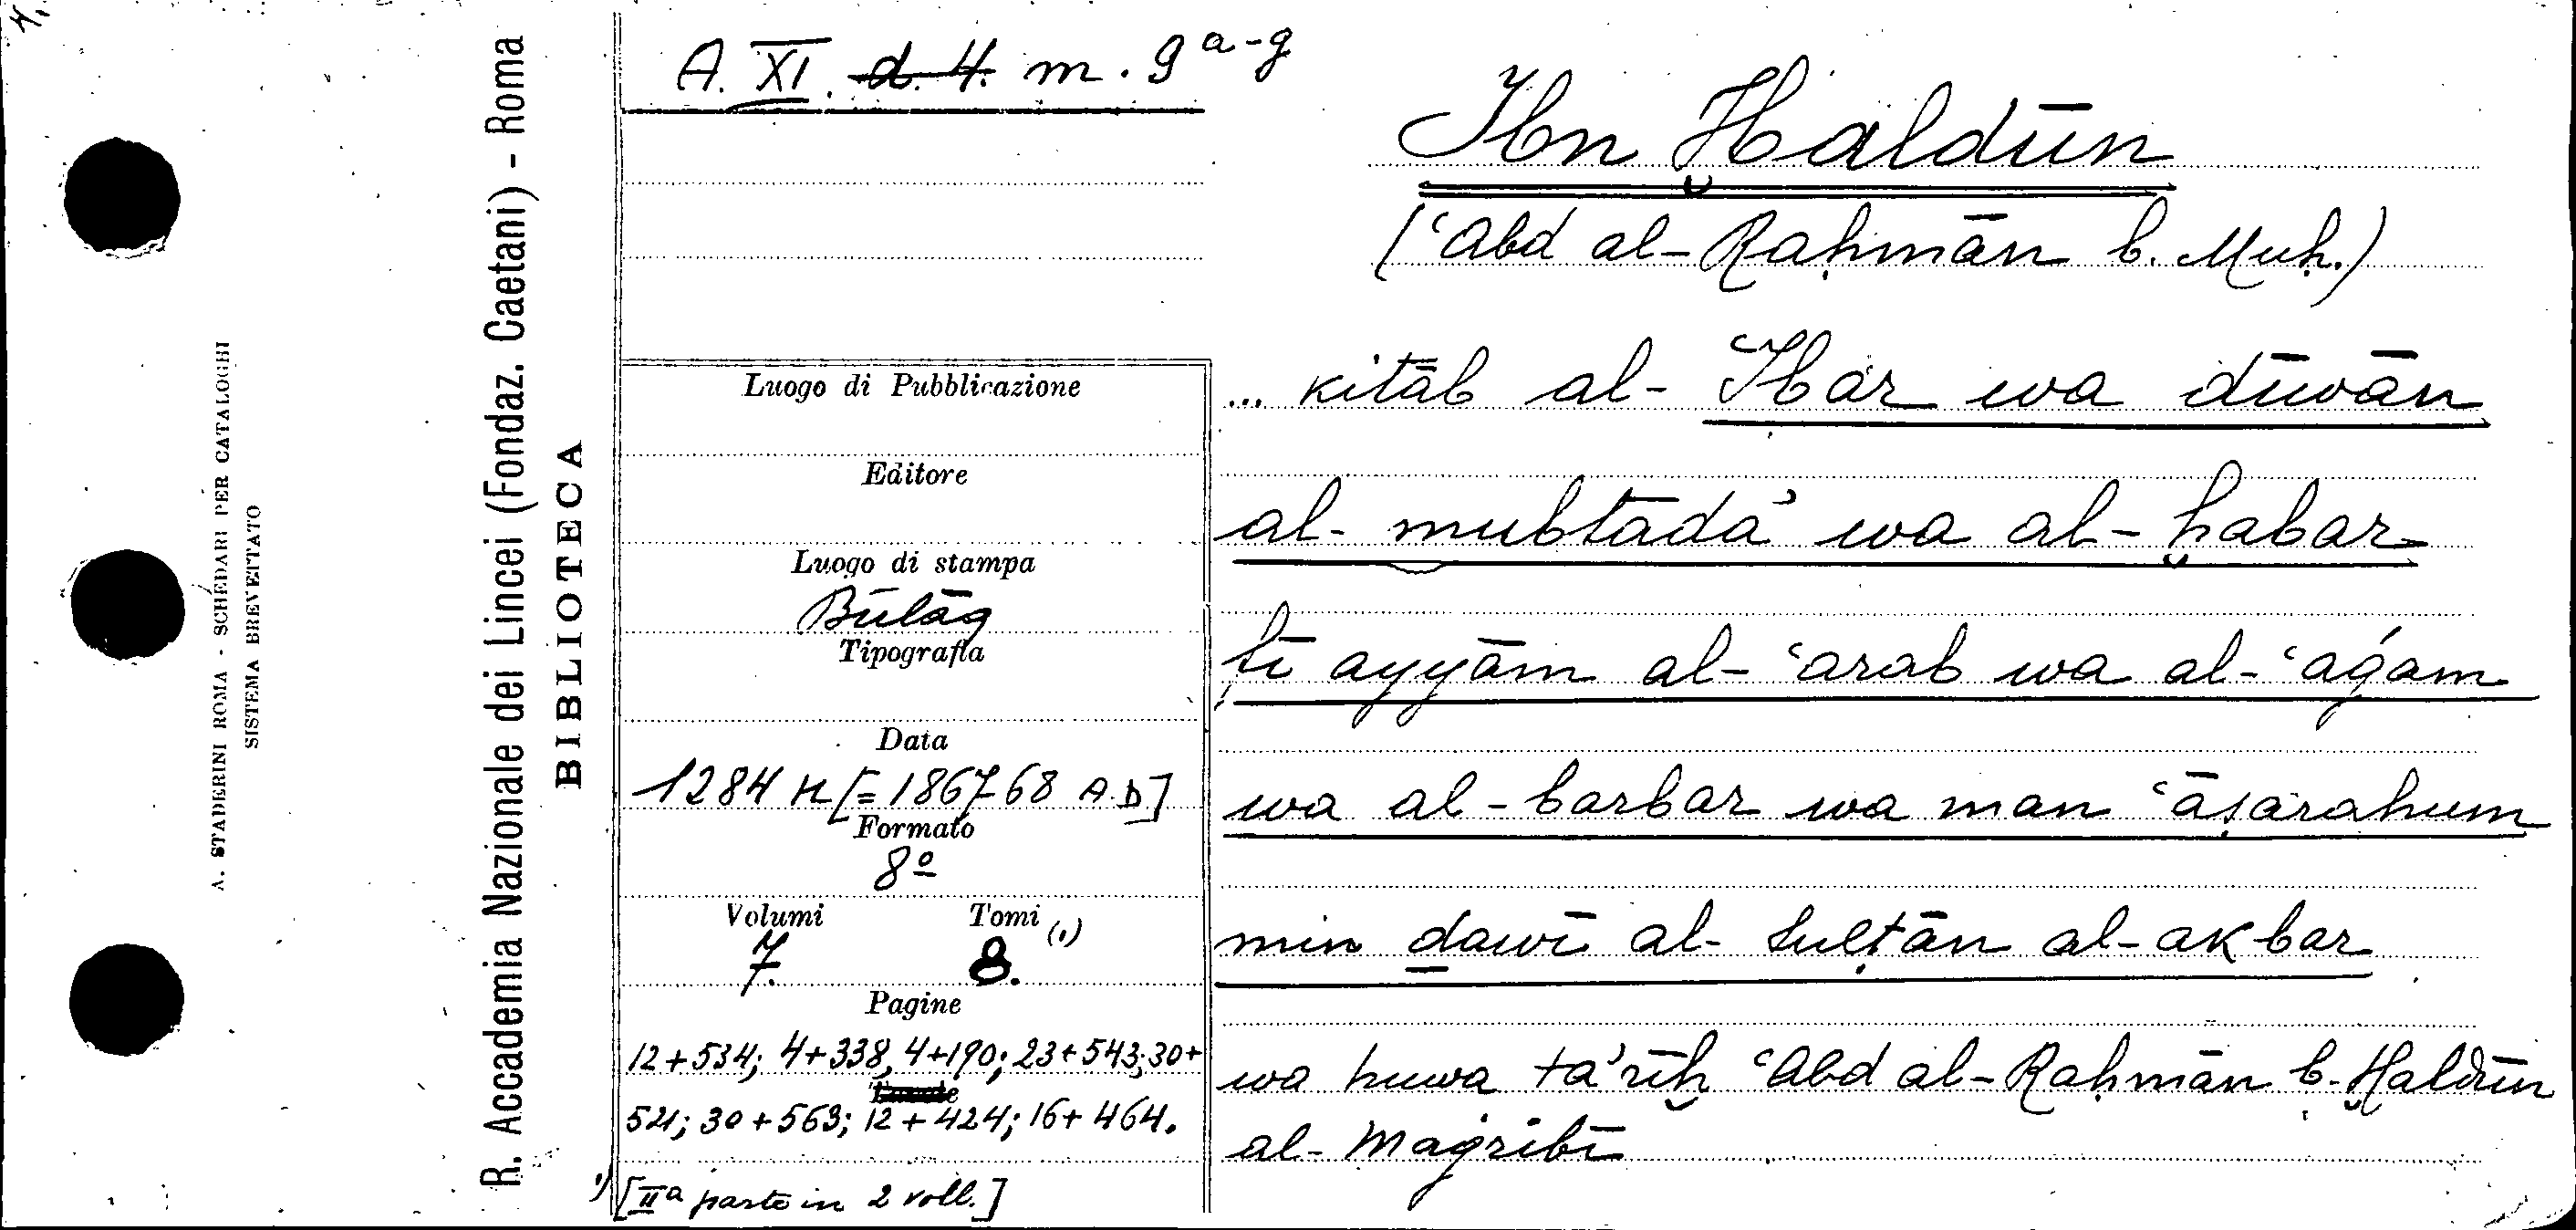 A. XI. d. 4. m. 9 a-g
Ibn Ḫaldūn
(ʿAbd al-Raḥmān b. Muḥ.)
... kitāb al-ʿIbar wa dīwān
al-mubtada' wa al-ḫabar
fī ayyām al-ʿarab wa al-ʿaǵam
wa al-barbar wa man ʿāṣarahum
min ḏawī al-sulṭān al-akbar
wa huwa ta'rīḫ ʿAbd al-Raḥmān b. Ḫaldūn
al-Maġribī
Luogo di Pubblicazione
Editore
Luogo di stampa
Būlāq
Tipografia
Data
1284 H [= 1867-68 A.D]
Formato
8º
Volumi Tomi (1)
7. 8.
Pagine
12+534; 4+338, 4+190; 23+543; 30+
521; 30+563; 12+424; 16+464.
1) [IIª parte in 2 voll.]
R. Accademia Nazionale dei Lincei (Fondaz. Caetani) - Roma
BIBLIOTECA
A. STADERINI ROMA - SCHEDARI PER CATALOGHI
SISTEMA BREVETTATO